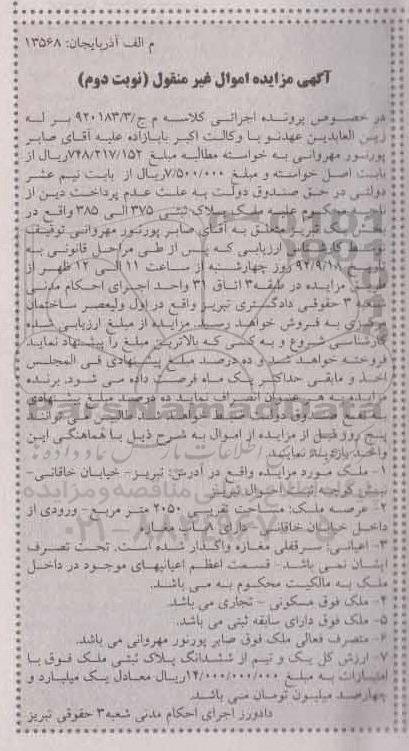 م الف آذربایجان: ۱۳۵۶۸
آگهی مزایده اموال غیر منقول (نوبت دوم)
در خصوص پرونده اجرائی کلاسه م ج/۹۲۰۱۸۳/۳ بر له
زین العابدین عهدنو با وکالت اکبر بابازاده علیه آقای صابر
پورنور مهروانی به خواسته مطالبه مبلغ ۷۴۸/۲۱۷/۱۵۲ریال از
بابت اصل خواسته و مبلغ ۷/۵۰۰/۰۰۰ریال از بابت نیم عشر
دولتی در حق صندوق دولت به علت عدم پرداخت دین از
محکوم علیه ملک پلاک ثبتی ۳۷۵الی ۳۸۵ واقع در
تبریز متعلق به آقای صابر پورنور مهروانی توقیف
توسط کارشناس ارزیابی که پس از طی مراحل قانونی به
تاریخ ۹۲/۹/۱۸ روز چهارشنبه از ساعت ۱۱ الی ۱۲ظهر از
طریق مزایده در طبقه۳ اتاق ۳۱ واحد اجرای احکام مدنی
شعبه ۳ حقوقی دادگستری تبریز واقع در اول ولیعصر ساختمان
مرکزی به فروش خواهد رسید. مزایده از مبلغ ارزیابی شده
کارشناسی شروع و به کسی که بالاترین مبلغ را پیشنهاد نماید
فروخته خواهد شد و ده درصد مبلغ پیشنهادی فی المجلس
اخذ و مابقی حداکثر یک ماه فرصت داده می شود. برنده
مزایده به هر عنوان انصراف نماید ده درصد مبلغ پیشنهادی
به نفع صندوق دولت خواهد شد
پنج روز قبل از مزایده از اموال به شرح ذیل با هماهنگی این
واحد بازدید نمایند.
۱- ملک مورد مزایده واقع در آدرس: تبریز- خیابان خاقانی-
نبش کوچه ثبت احوال تبریز
۲- عرصه ملک: مساحت تقریبی ۲۰۵۰ متر مربع - ورودی از
داخل خیابان خاقانی- دارای ۸ باب مغازه
۳- اعیانی: سرقفلی مغازه واگذار شده است. تحت تصرف
ایشان نمی باشد- قسمت اعظم اعیانیهای موجود در داخل
ملک به مالکیت محکوم به می باشد.
۴- ملک فوق مسکونی - تجاری می باشد.
۵- ملک فوق دارای سابقه ثبتی می باشد.
۶- متصرف فعالی ملک فوق صابر پورنور مهروانی می باشد.
۷- ارزش کل یک و نیم از ششدانگ پلاک ثبتی ملک فوق با
امتیازات به مبلغ ۱۴/۰۰۰/۰۰۰/۰۰۰ریال معادل یک میلیارد و
چهارصد میلیون تومان می باشد.
دادورز اجرای احکام مدنی شعبه۳ حقوقی تبریز